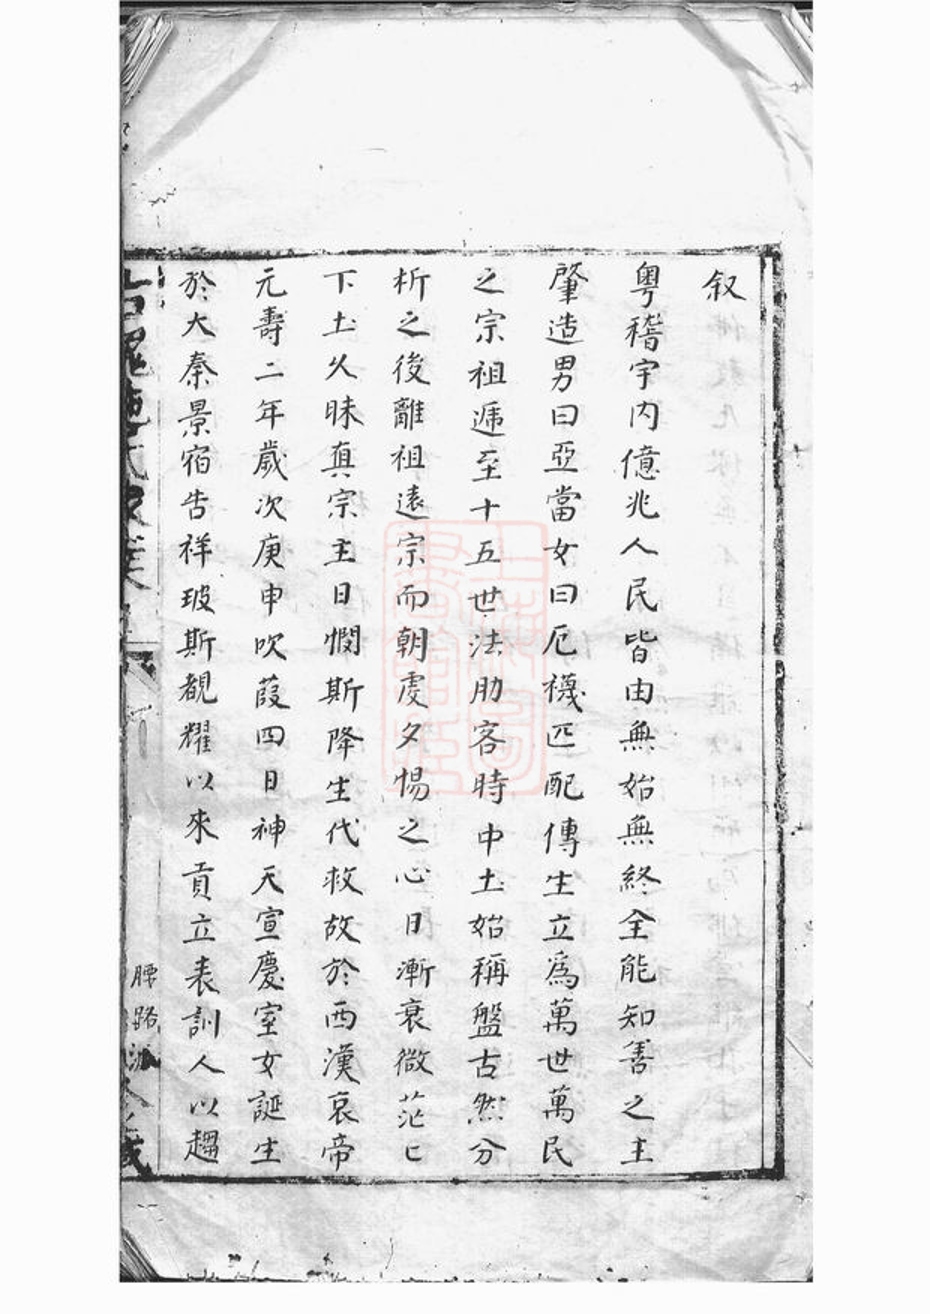 叙
粵稽宇内億兆人民皆由無始無終全能知善之主
肇造男曰亞當女曰厄襪匹配傳生立為萬世萬民
之宗祖遞至十五世法肋客時中土始稱盤古然分
析之後離祖遠宗而朝虔夕惕之心日漸衰微茫匕
下土久昧真宗主日憫斯降生代救故於西漢哀帝
元壽二年歲次庚申吹葭四日神天宣慶室女誕生
於大秦景宿告祥玻斯覩耀以來貢立表訓人以趨
腰路派